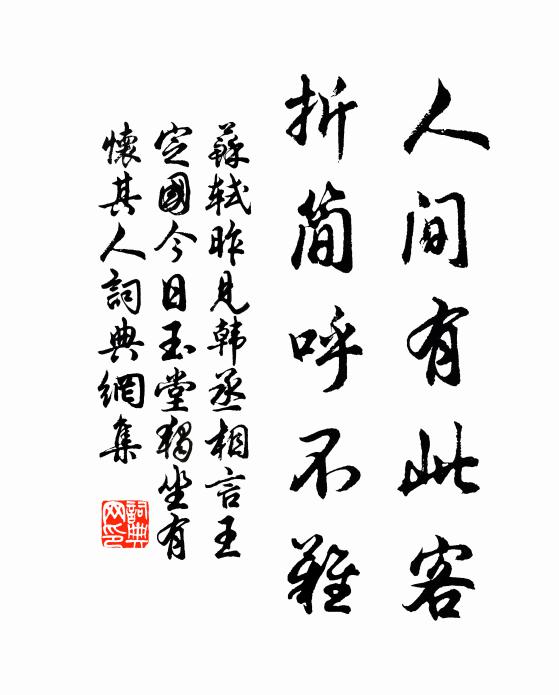 人间有此客
折简呼不难
蘇軾昨見韩丞相言王
定國今日玉堂獨坐有
懷其人詞典網集
詞典
网印